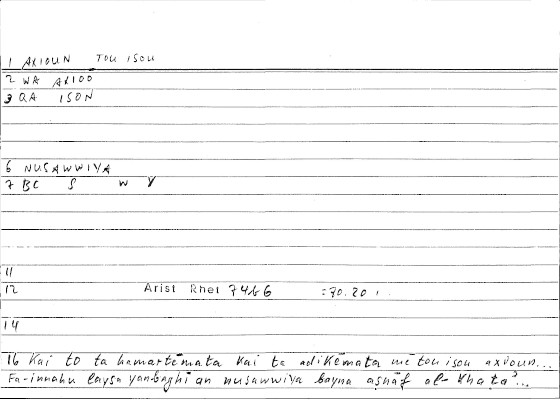 1 AXIOUN TOU ISOU
2 WA AXIOO
3 QA ISON
6 NUSAWWIYA
7 BC S W Y
11
12 Arist Rhet 74b6 =70.20
14
16 Kai to ta hamartēmata kai ta adikēmata mē tou isou axioun...
Fa-innahu laysa yanbaghī an nusawwiya bayna aṣnāf al-khaṭaʾ...